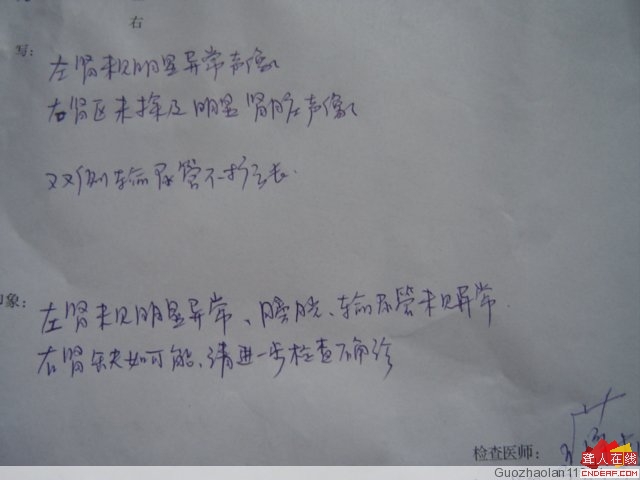 右
写：
左肾未见明显异常声像
右肾区未探及明显肾脏声像
双侧输尿管不扩张
印象：
左肾未见明显异常、膀胱、输尿管未见异常.
右肾缺如可能、请进一步检查确诊
检查医师：
聋人在线
CNDEAF.COM
Guozhaolan11